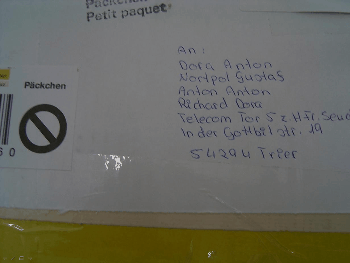 Päckchen
Petit paquet
Päckchen
60
An:
Dora Anton
Nordpol Gustav
Anton Anton
Richard Dora
Telecom Tor 5 z.H. Fr.
In der Gottbillstr. 19
54294 Trier